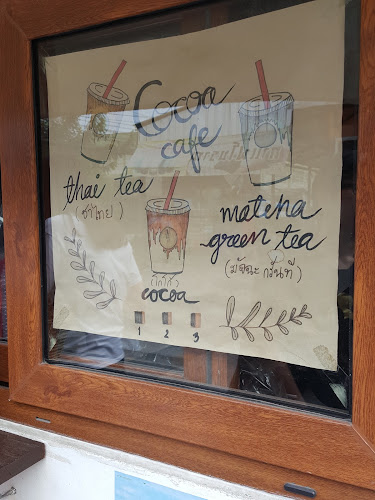 Cocoa
cafe
thai tea
(ชาไทย)
matcha
green tea
(มัจฉะ กรีนที)
(โกโก้)
cocoa
1 2 3